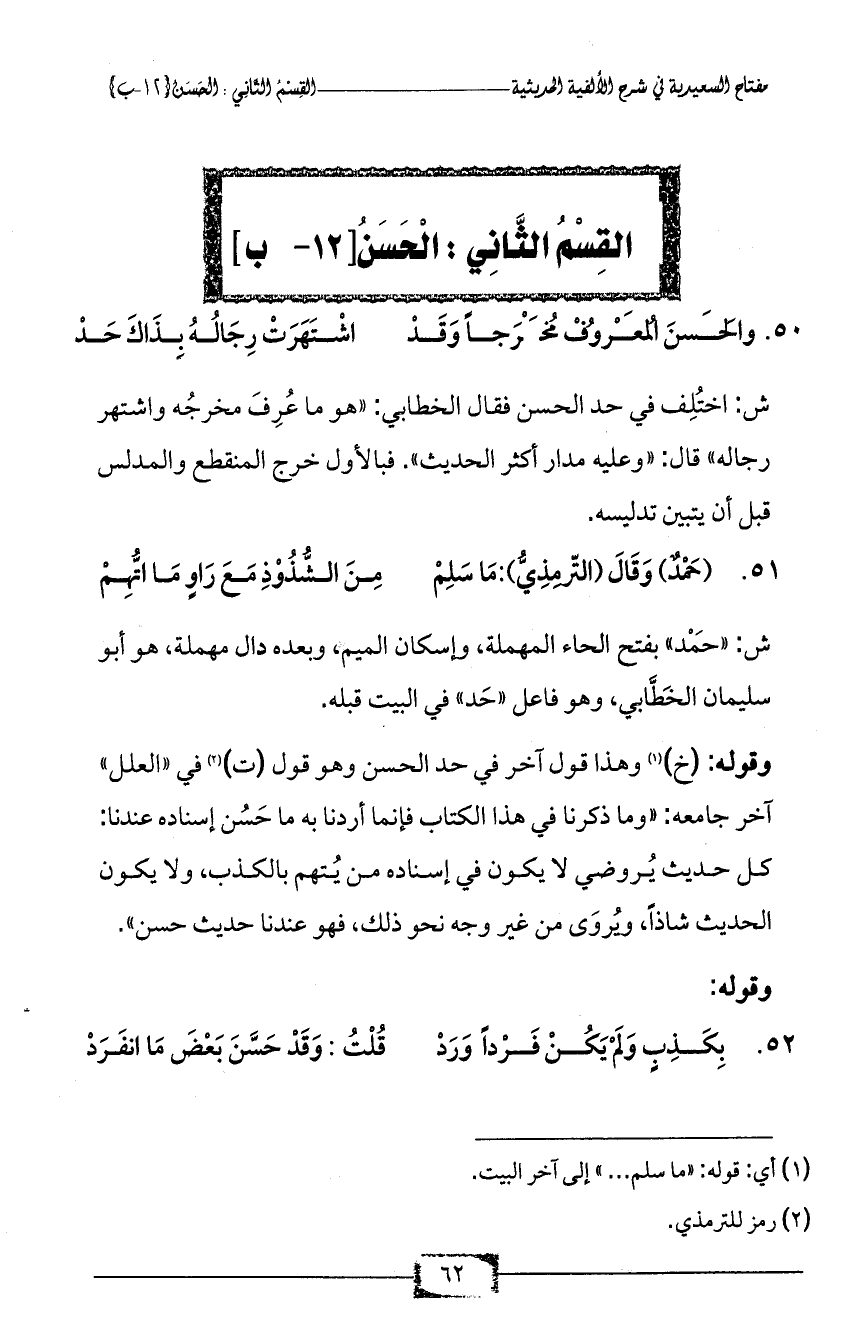 مفتاح السعيدية في شرح الألفية الحديثية ـــــــــ القِسْمُ الثَّاني : الحَسَنُ{١٢-ب}
القِسْمُ الثَّانِي : الْحَسَنُ[١٢- ب]
٥٠. والحَسَنَ المَعْرُوفُ مُخْرَجاً وَقَدْ اشْتَهَرَتْ رِجَالُهُ بِذَاكَ حَدْ
ش: اختُلِف في حد الحسن فقال الخطابي: «هو ما عُرِفَ مخرجُه واشتهر
رجاله» قال: «وعليه مدار أكثر الحديث». فبالأول خرج المنقطع والمدلس
قبل أن يتبين تدليسه.
٥١. (حَمْدٌ) وَقَالَ (التِّرمِذِيُّ):مَا سَلِمْ مِنَ الشُّذُوْذِ مَعَ رَاوٍ مَا اتُّهِمْ
ش: «حَمْد» بفتح الحاء المهملة، وإسكان الميم، وبعده دال مهملة، هو أبو
سليمان الخَطَّابي، وهو فاعل «حَد» في البيت قبله.
وقوله: (خ)(١) وهذا قول آخر في حد الحسن وهو قول (ت)(٢) في «العلل»
آخر جامعه: «وما ذكرنا في هذا الكتاب فإنما أردنا به ما حَسُن إسناده عندنا:
كل حديث يُروضي لا يكون في إسناده من يُتهم بالكذب، ولا يكون
الحديث شاذاً، ويُروَى من غير وجه نحو ذلك، فهو عندنا حديث حسن».
وقوله:
٥٢. بِكَذِبٍ وَلَمْ يَكُنْ فَرْداً وَرَدْ قُلْتُ : وَقَدْ حَسَّنَ بَعْضَ مَا انفَرَدْ
(١) أي: قوله: «ما سلم... » إلى آخر البيت.
(٢) رمز للترمذي.
٦٢